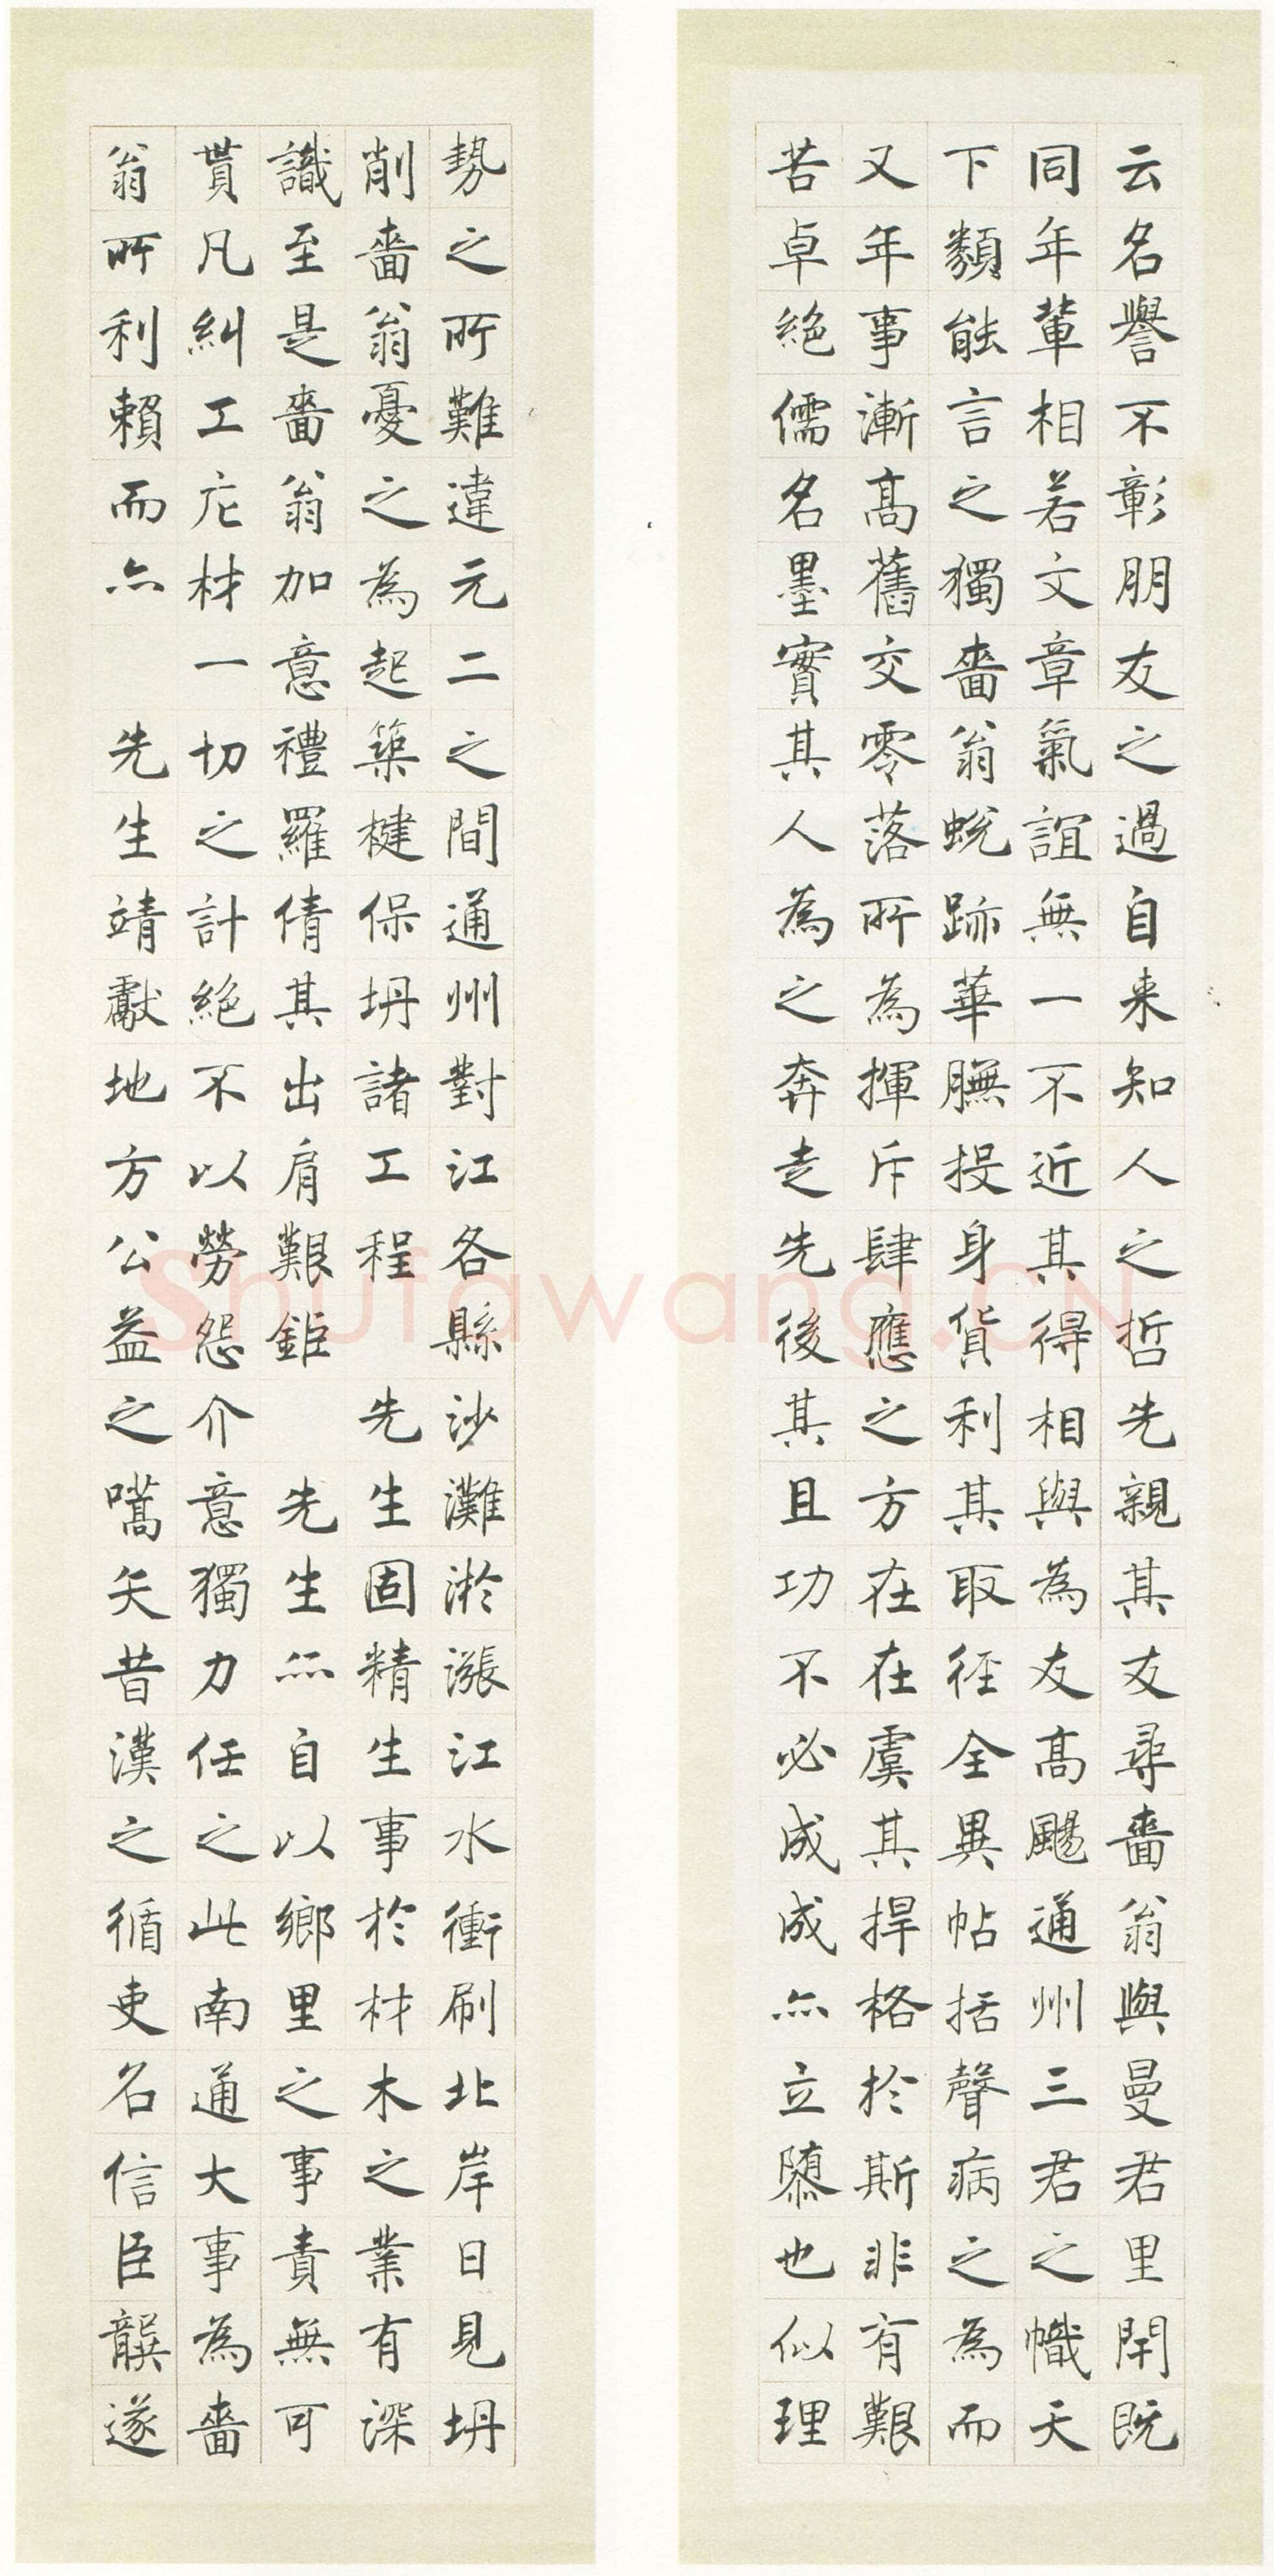 云名譽不彰朋友之過自来知人之哲先親其友尋嗇翁與曼君里閈既
同年輩相若文章氣誼無一不近其得相與為友高颺通州三君之幟天
下類能言之獨嗇翁蛻跡華膴投身貨利其取徑全異帖括聲病之為而
又年事漸高舊交零落所為揮斥肆應之方在在虞其捍格於斯非有艱
苦卓絕儒名墨實其人為之奔走先後其且功不必成成亦立隳也似理
勢之所難違元二之間通州對江各縣沙灘淤漲江水衝刷北岸日見坍
削嗇翁憂之為起築楗保坍諸工程 先生固精生事於材木之業有深
識至是嗇翁加意禮羅倩其出肩艱鉅 先生亦自以鄉里之事責無可
貰凡糾工庀材一切之計絕不以勞怨介意獨力任之此南通大事為嗇
翁所利賴而亦 先生靖獻地方公益之嚆矢昔漢之循吏名信臣龔遂
Shufawang.CN